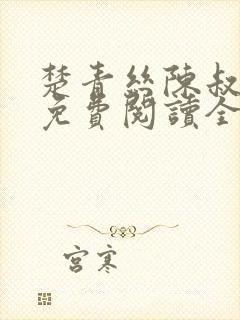 楚青絲陳叔
免費閱讀全
宮寒